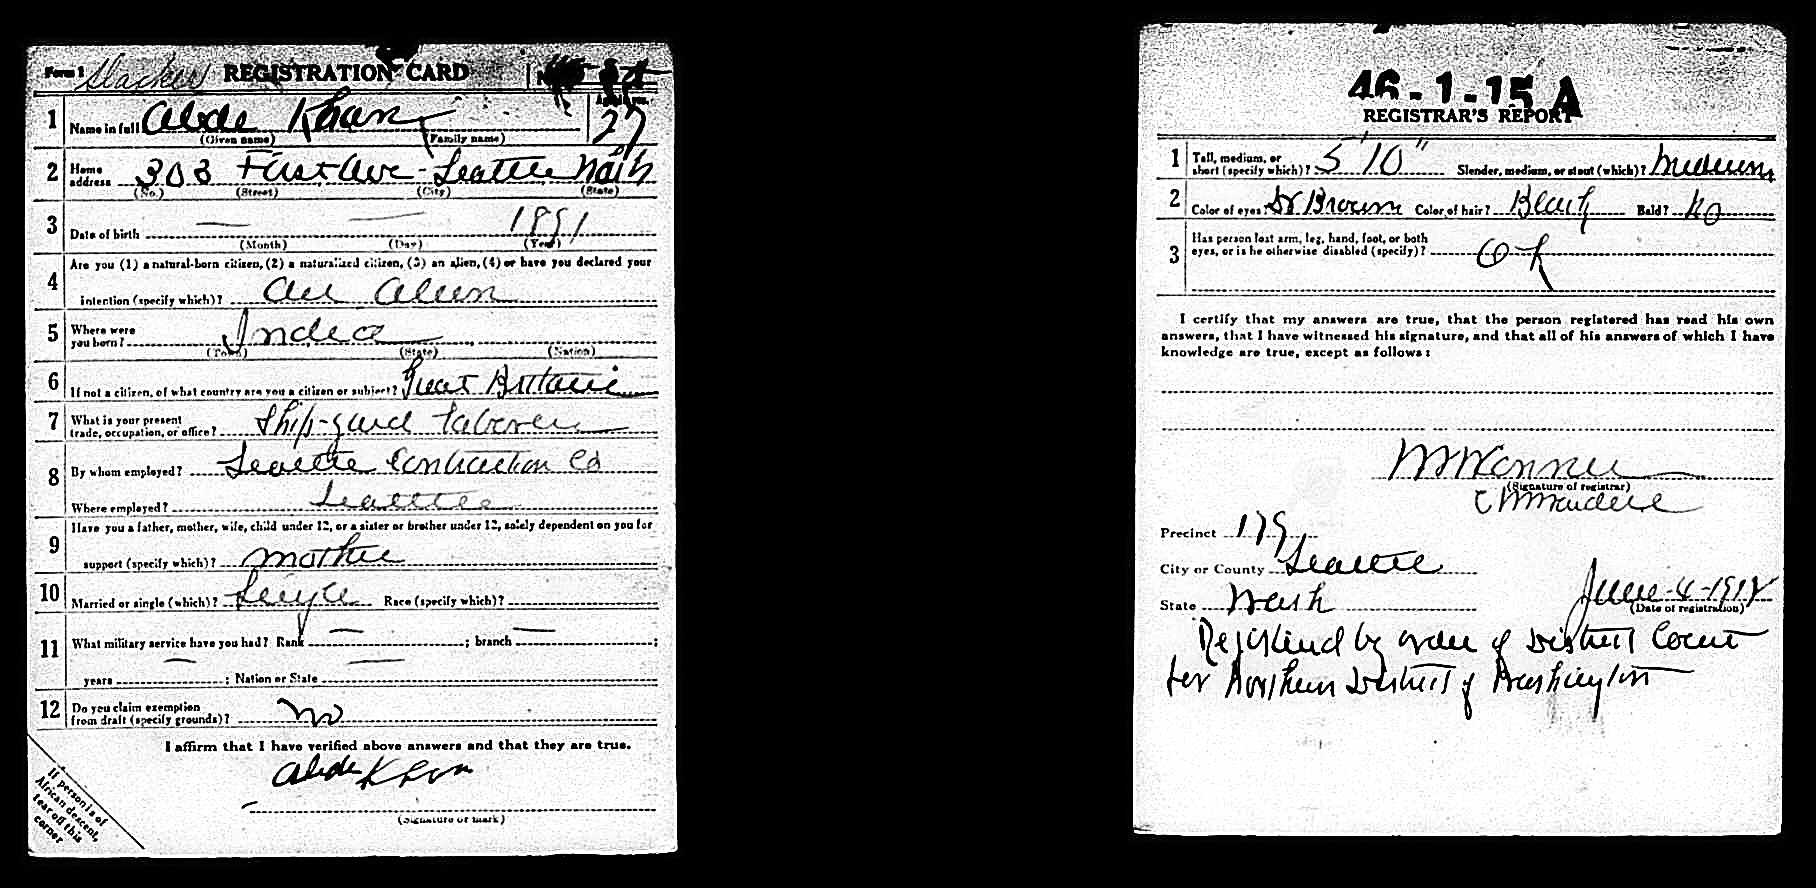 Form 1 Slacker REGISTRATION CARD No.
1 Name in full Abde Khan 27
(Given name) (Family name)
2 Home address 303 First Ave - Seattle Wash
(No.) (Street) (City) (State)
3 Date of birth — — 1891
(Month) (Day) (Year)
4 Are you (1) a natural-born citizen, (2) a naturalized citizen, (3) an alien, (4) or have you declared your
intention (specify which)? An Alien
5 Where were you born? India
(Town) (State) (Nation)
6 If not a citizen, of what country are you a citizen or subject? Great Brittain
7 What is your present trade, occupation, or office? Ship-yard Laborer
8 By whom employed? Seattle Construction Co
Where employed? Seattle
9 Have you a father, mother, wife, child under 12, or a sister or brother under 12, solely dependent on you for
support (specify which)? Mother
10 Married or single (which)? Single Race (specify which)?
11 What military service have you had? Rank — ; branch — ;
years — ; Nation or State —
12 Do you claim exemption from draft (specify grounds)? No
I affirm that I have verified above answers and that they are true.
Abde Khan
(Signature or mark)
If person is of
African descent,
tear off this
corner
46-1-15 A
REGISTRAR'S REPORT
1 Tall, medium, or short (specify which)? 5' 10" Slender, medium, or stout (which)? Medium
2 Color of eyes? Dr Brown Color of hair? Black Bald? No
3 Has person lost arm, leg, hand, foot, or both
eyes, or is he otherwise disabled (specify)? OK
I certify that my answers are true, that the person registered has read his own
answers, that I have witnessed his signature, and that all of his answers of which I have
knowledge are true, except as follows:
(Signature of registrar)
Precinct 179
City or County Seattle
State Wash June-4-1918
(Date of registration)
Registered by order of District Court
for Northern District of Washington